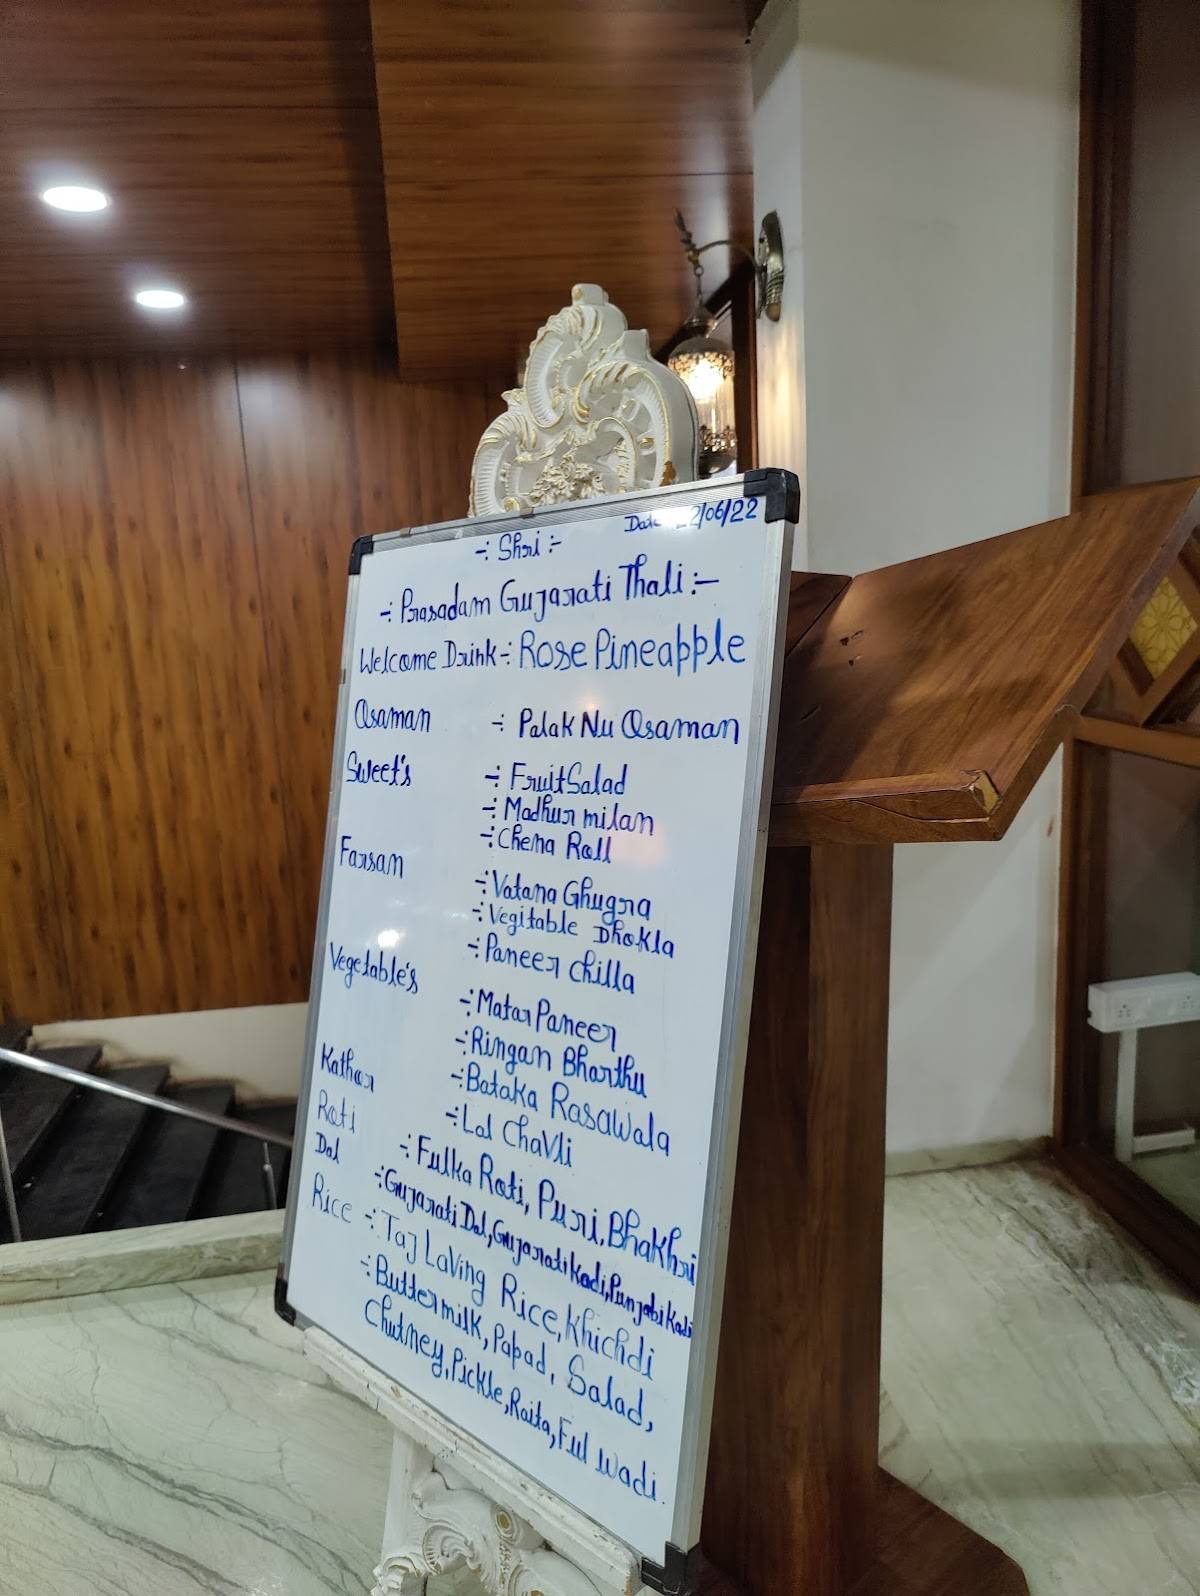 Date 22/06/22
-: Shri :-
-: Prasadam Gujarati Thali :-
Welcome Drink -: Rose Pineapple
Osaman -: Palak Nu Osaman
Sweet's -: Fruit Salad
-: Madhur milan
-: Chena Roll
Farsan -: Vatana Ghugra
-: Vegitable Dhokla
-: Paneer chilla
Vegetable's -: Matar Paneer
-: Ringan Bharthu
-: Bataka Rasawala
Kathor -: Lal Chavli
Roti -: Fulka Roti, Puri, Bhakhri
Dal -: Gujarati Dal, Gujarati Kadi, Punjabi Kadi
Rice -: Taj LaVing Rice, Khichdi
-: Buttermilk, Papad, Salad,
Chutney, Pickle, Raita, Ful wadi.